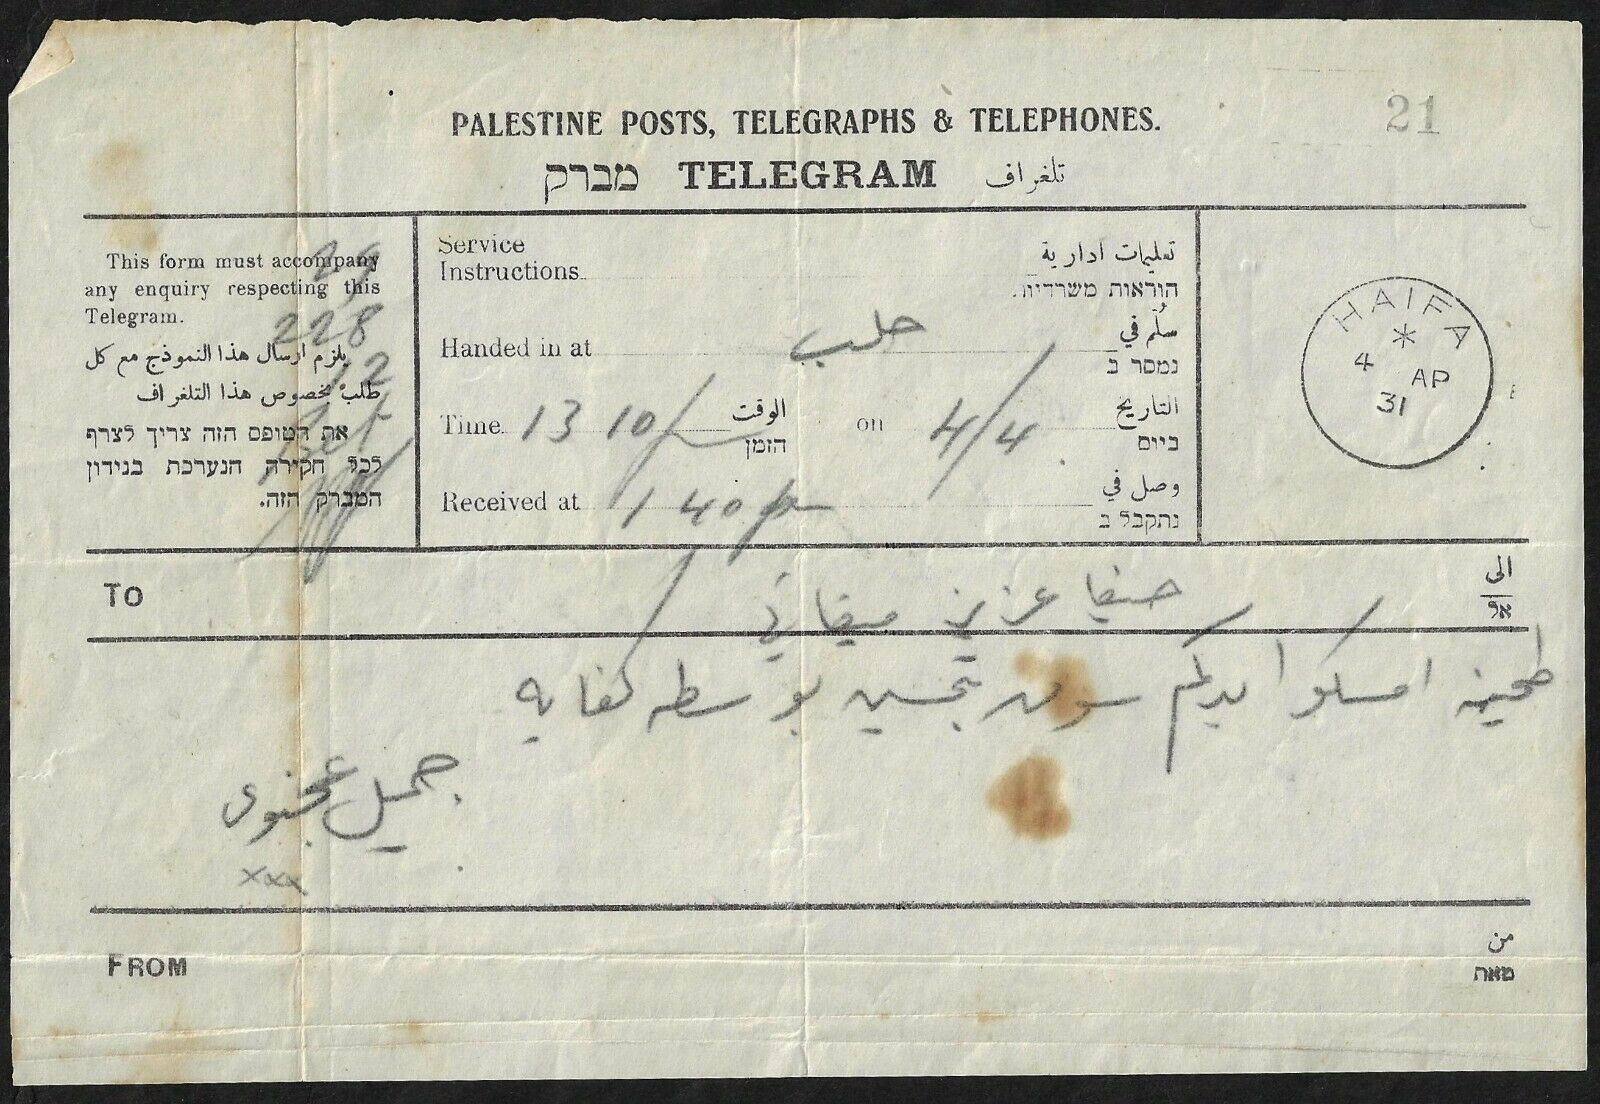 21
PALESTINE POSTS, TELEGRAPHS & TELEPHONES.
מברק TELEGRAM تلغراف
This form must accompany
any enquiry respecting this
Telegram.
يلزم ارسال هذا النموذج مع كل
طلب بخصوص هذا التلغراف
את הטופס הזה צריך לצרף
לכל חקירה הנערכת בנידון
המברק הזה.
29
228
12
Service
Instructions
تعليمات ادارية
הוראות משרדיות.
Handed in at حلب سلّم في
נמסר ב
Time 13 10 الوقت
הזמן
on 4/4 التاريخ
ביום
Received at 1 40 pm وصل في
נתקבל ב
HAIFA
*
4 AP
31
To حيفا عزيز ميقاتي الى
אל
طحينه امسكوا ايدكم سوق بتحسين بوسطه كفايه
جميل
xxx
FROM من
מאת